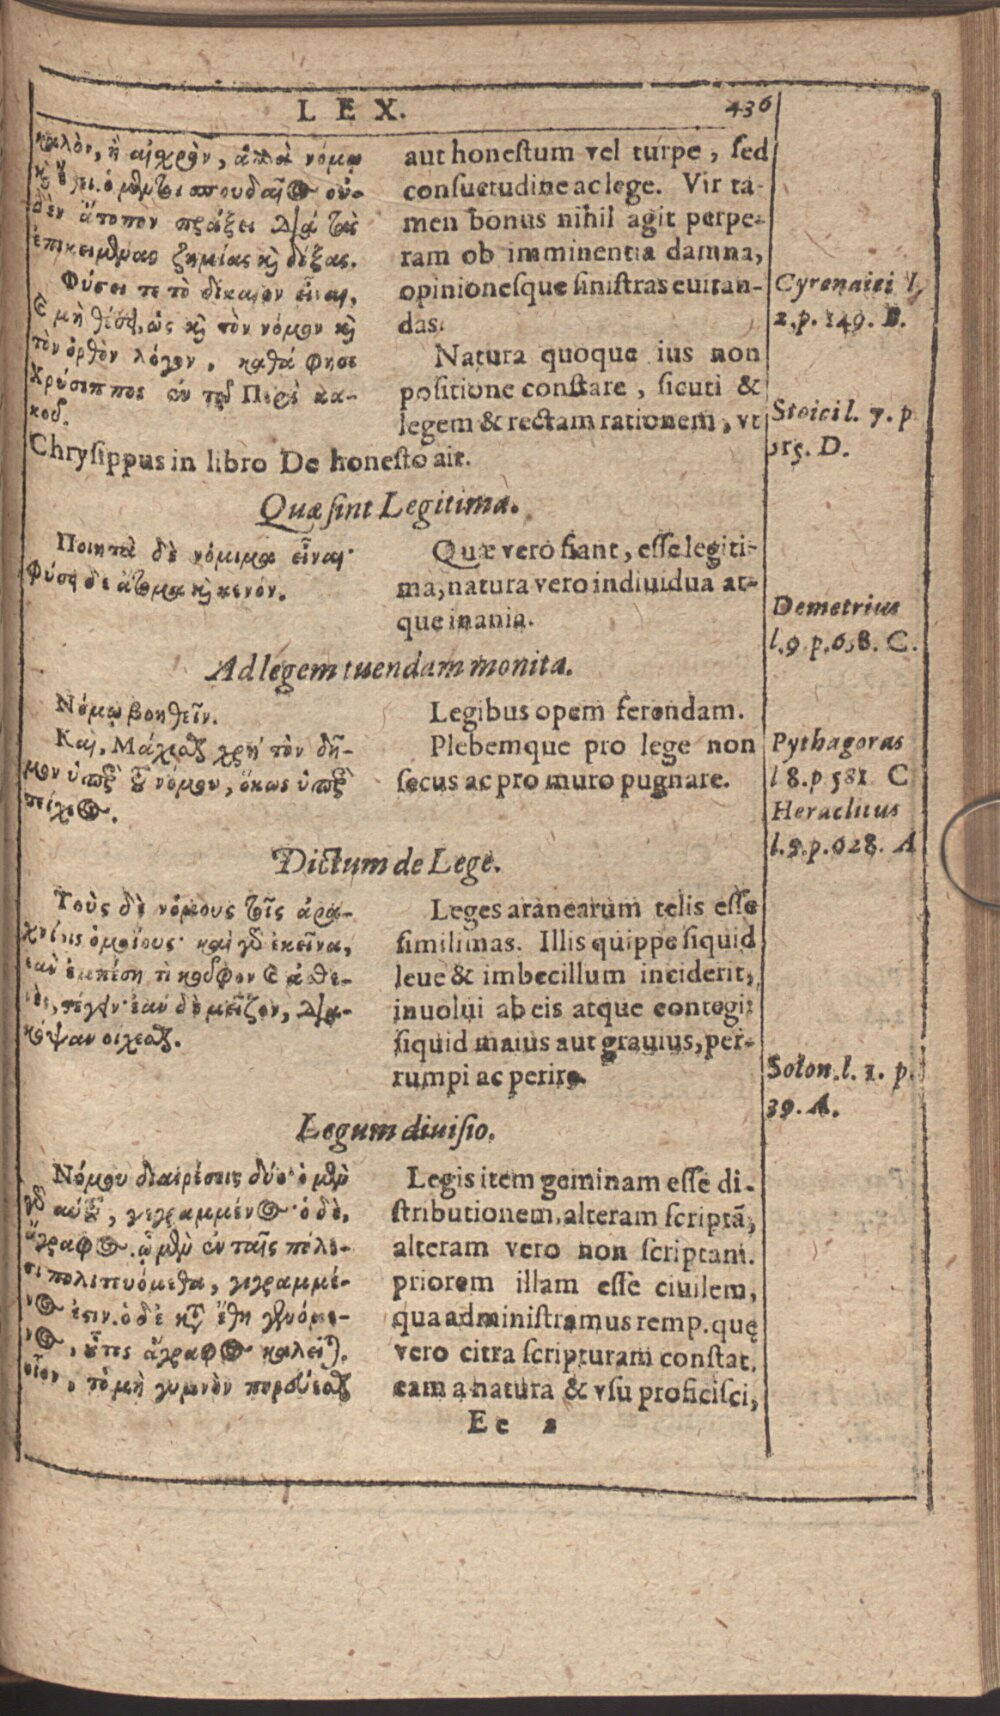 LEX.
436
καλὸν, ἢ αἰχρὸν, ἀλλὰ νόμῳ
καὶ ἔθει. ὁ μέντοι σπουδαῖος οὐ-
δὲν ἄτοπον πράξει διὰ τὰς
ἐπικειμένας ζημίας καὶ δόξας.
Φύσει τε τὸ δίκαιον εἶναι,
καὶ μὴ θέσει, ὡς καὶ τὸν νόμον καὶ
τὸν ὀρθὸν λόγον, καθά φησι
Χρύσιππος ἐν τῷ Περὶ κα-
λοῦ.
aut honeſtum vel turpe, ſed
conſuetudine ac lege. Vir ta-
men bonus nihil agit perpe-
ram ob imminentia damna,
opinioneſque ſiniſtras euitan-
das.
Natura quoque ius non
poſitione conſtare, ſicuti &
legem & rectam rationem, vt
Chryſippus in libro De honeſto ait.
Cyrenaici l.
2.p. 149. B.
Stoici l. 7. p
515. D.
Quæ ſint Legitima.
Ποιητὰ δὲ νόμιμα εἶναι·
Φύσει δὲ ἄτομα καὶ κενόν.
Quæ vero fiant, eſſe legiti-
ma, natura vero indiuidua at-
que inania.
Demetrius
l.9 p.658. C.
Ad legem tuendam monita.
Νόμῳ βοηθεῖν.
Καὶ, Μάχεσθαι χρὴ τὸν δῆ-
μον ὑπὲρ τοῦ νόμου, ὅκως ὑπὲρ
τείχεος.
Legibus opem ferendam.
Plebemque pro lege non
ſecus ac pro muro pugnare.
Pythagoras
l 8.p 581 C
Heraclitus
l.9.p.628. A
Dictum de Lege.
Τοὺς δὲ νόμους τοῖς ἀρα-
χνίοις ὁμοίους· καὶ γὰρ ἐκεῖνα,
ἐὰν ἐμπέσῃ τὶ κοῦφον καὶ ἀσθε-
νὲς, στέγειν· ἐὰν δὲ μεῖζον, δια-
κόψαν οἴχεσθαι.
Leges aranearum telis eſſe
ſimilimas. Illis quippe ſiquid
leue & imbecillum inciderit,
inuolui ab eis atque contegi:
ſiquid maius aut grauius, per-
rumpi ac perire.
Solon. l. 1. p.
39. A.
Legum diuiſio.
Νόμου διαιρέσεις δύο· ὁ μὲν
γὰρ αὐτοῦ, γεγραμμένος· ὁ δὲ,
ἄγραφος. ᾧ μὲν ἐν ταῖς πόλε-
σι πολιτευόμεθα, γεγραμμέ-
νος ἐστιν. ὁ δὲ κατὰ ἔθη γενόμε-
νος, οὗτος ἄγραφος καλεῖται.
οἷον, τὸ μὴ γυμνὸν πορεύεσθαι
Legis item geminam eſſe di-
ſtributionem, alteram ſcriptã,
alteram vero non ſcriptam.
priorem illam eſſe ciuilem,
qua adminiſtramus remp. quę
vero citra ſcripturam conſtat,
eam a natura & vſu proficiſci,
Ee 2